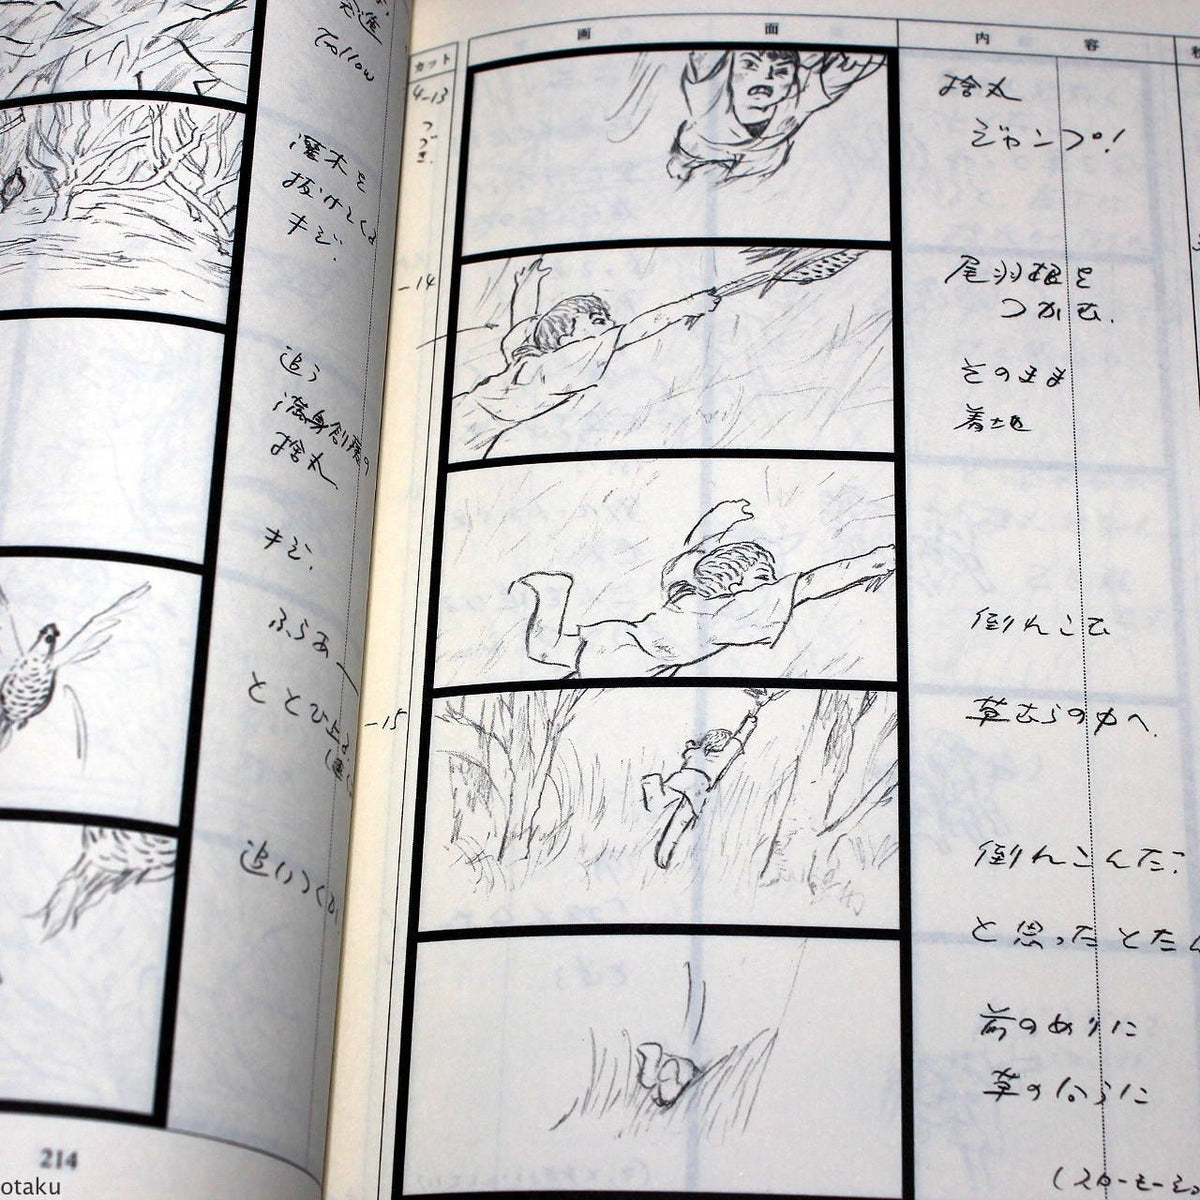 Follow
灌木を
抜けてくる
キジ.
追う
満身創痍の
捨丸
キジ.
ふらぁー
ととび上る
追いつくか
214
otaku
カット
画 面
内 容
4-13
つづき.
捨丸
ジャンプ!
-14
尾羽根を
つかむ.
そのまま
着地
倒れこむ
-15
草むらの中へ.
倒れこんだ?
と思ったとたん
前のめりに
草のむこうに